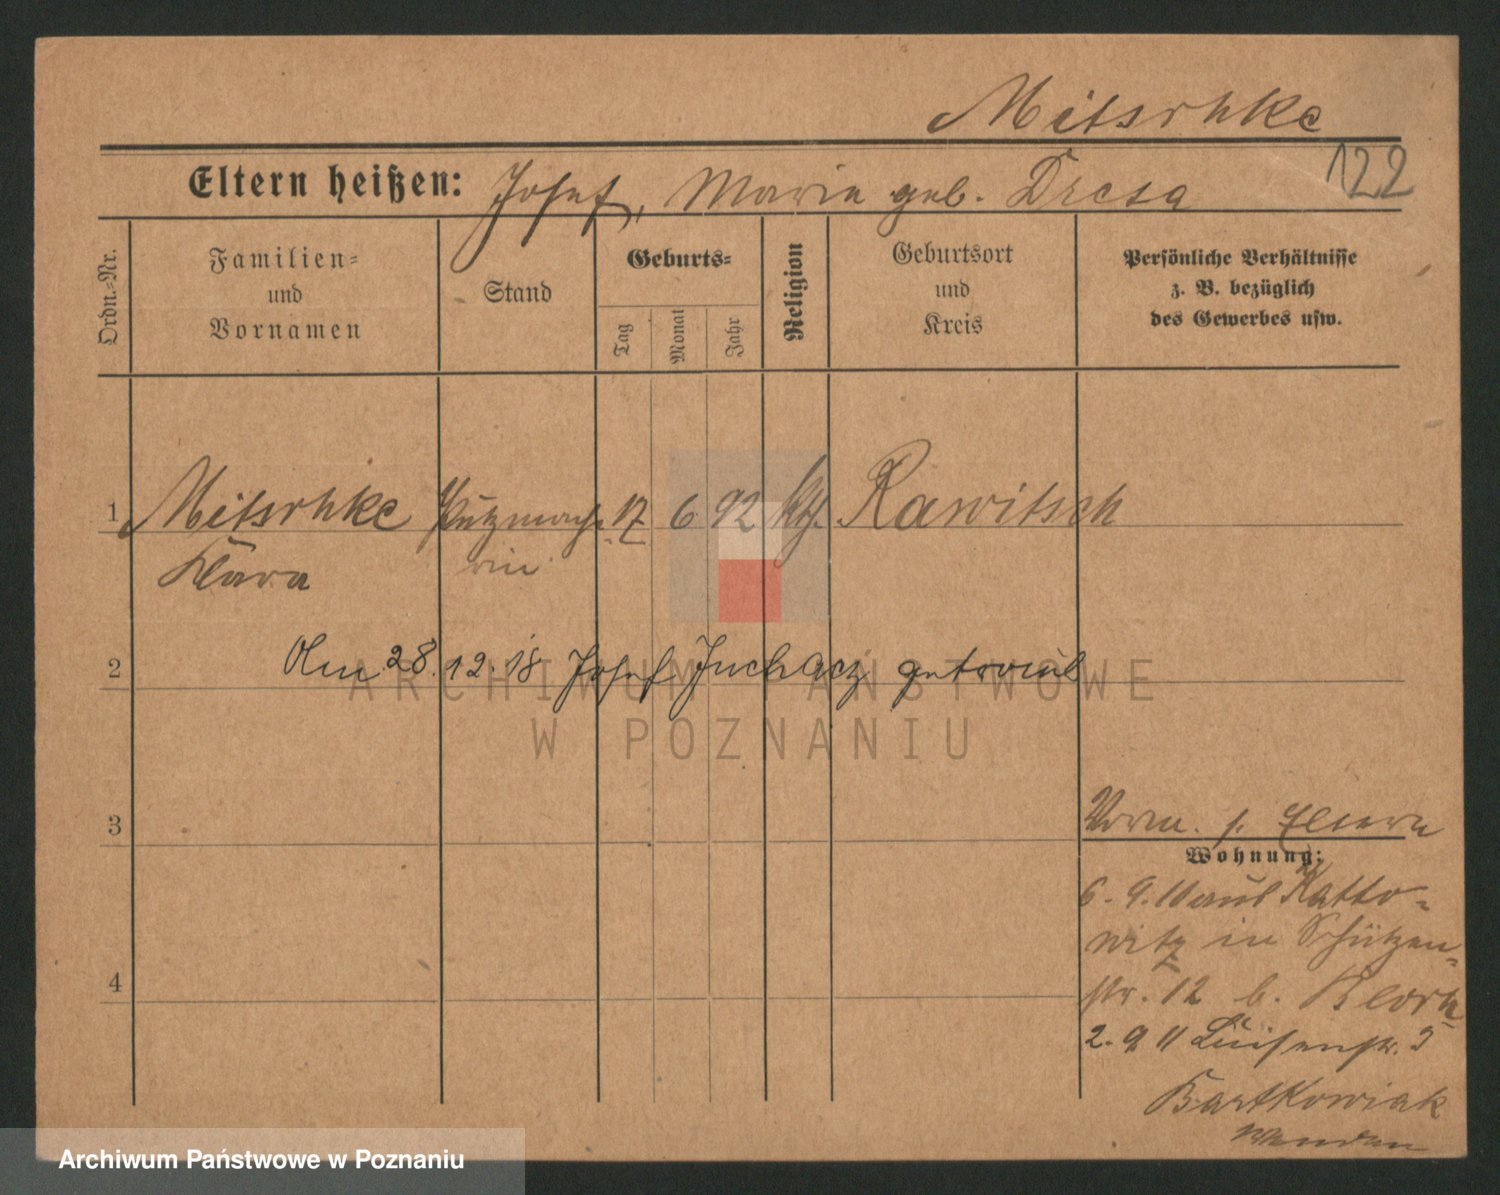 Mitschke
Eltern heißen: Josef, Marie geb. Dresa
122
Ordn.-Nr.
Familien-
und
Vornamen
Stand
Geburts-
Tag
Monat
Jahr
Religion
Geburtsort
und
Kreis
Persönliche Verhältnisse
z. B. bezüglich
des Gewerbes usw.
1 Mitschke Putzmache- 17 6 92 kth. Rawitsch
Klara rin
2 Am 28.12.18 Josef Juchacz getraut
3
Wohnung:
6.9.10 aus Katto-
witz in Schützen-
str. 12 b.
2.9 11 Luisenstr. 5
Bartkowiak
Wenden
4
ARCHIWUM PAŃSTWOWE
W POZNANIU
Archiwum Państwowe w Poznaniu